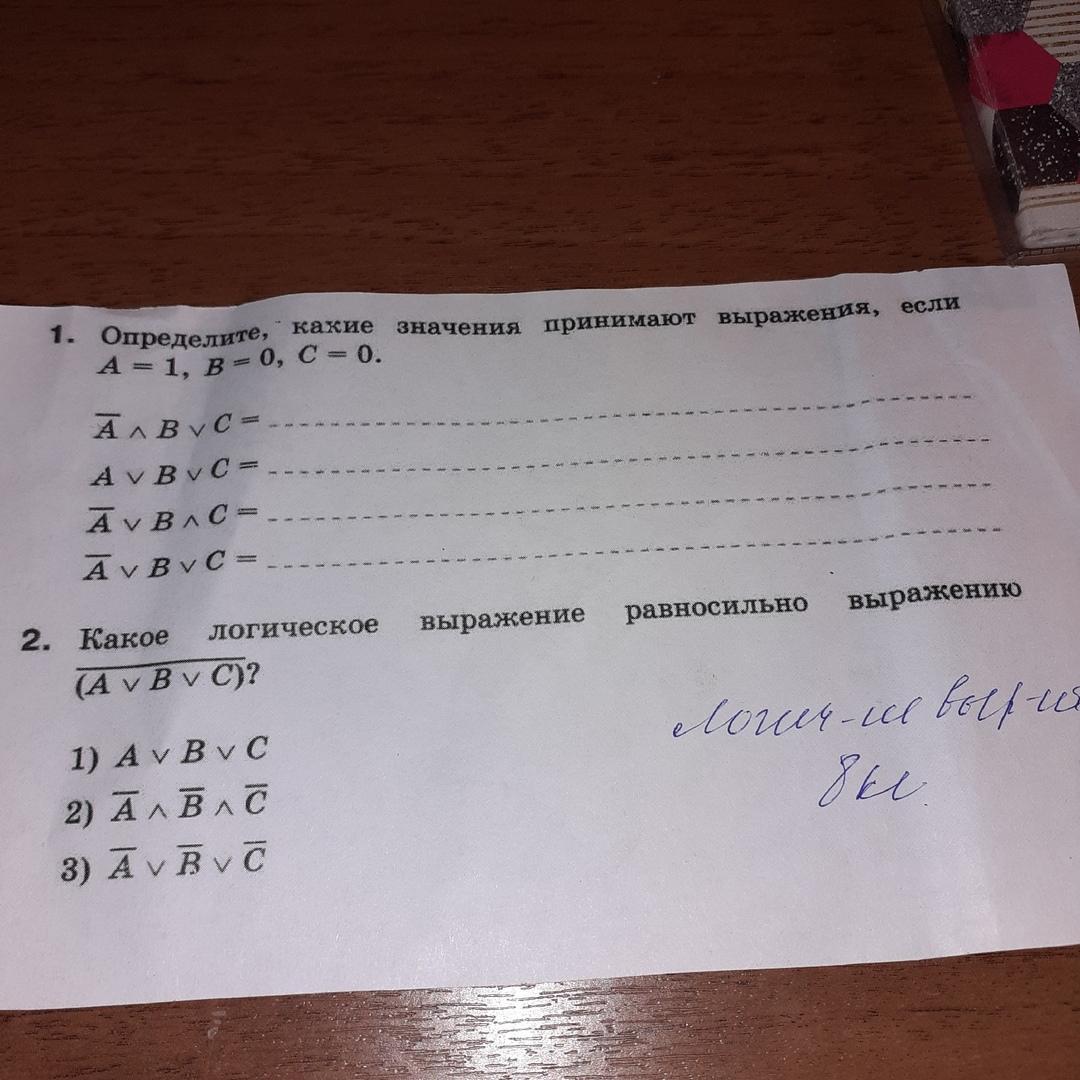 1. Определите, какие значения принимают выражения, если
A = 1, B = 0, C = 0.
A̅ ∧ B ∨ C =
A ∨ B ∨ C =
A̅ ∨ B ∧ C =
A̅ ∨ B ∨ C =
2. Какое логическое выражение равносильно выражению
(A̅ ̅∨̅ ̅B̅ ̅∨̅ ̅C̅)?
1) A ∨ B ∨ C
2) A̅ ∧ B̅ ∧ C̅
3) A̅ ∨ B̅ ∨ C̅
Логич-ие выр-ия
8 кл.